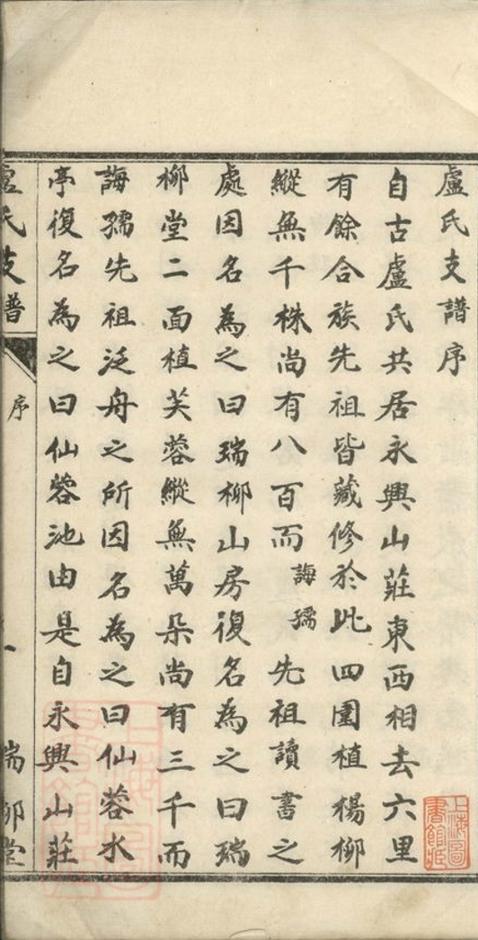 盧氏支譜序
自古盧氏共居永興山莊東西相去六里
有餘合族先祖皆藏修於此四圍植楊柳
縱無千株尚有八百而誨孺先祖讀書之
處因名為之曰瑞柳山房復名為之曰瑞
柳堂二面植芙蓉縱無萬朵尚有三千而
誨孺先祖泛舟之所因名為之曰仙蓉水
亭復名為之曰仙蓉池由是自永興山莊
盧氏支譜
序
一
瑞柳堂
上海圖書館藏